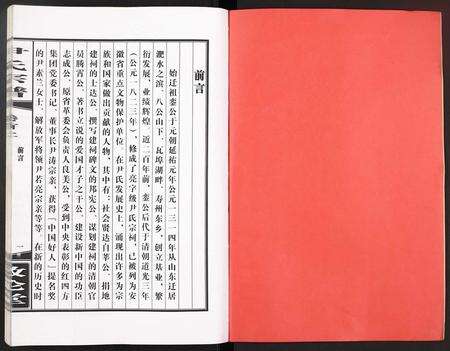 前言
始迁祖銮公于元朝延祐元年公元一三一四年从山东迁居
淝水之滨、八公山下、瓦埠湖畔、寿州东乡，创立基业，繁
衍发展，业绩辉煌。近二百年前，銮公后代于清朝道光三年
（公元一八二三年），修成了亮字级尹氏宗祠，已被列为安
徽省重点文物保护单位。在尹氏发展史上，涌现出许多为宗
族和国家做出贡献的人物，其中有：社会贤达自莘公、捐地
建祠的士达公、撰写建祠碑文的邦宪公、谋划建祠的清朝官
员腾霄公、著书立说的爱国才子之干公、建设新中国的功臣
志成公、原省革委会负责人良美公、受到中央表彰的红四方
集团党委书记、董事长尹涛宗亲、获得「中国好人」提名奖
的尹素兰女士、解放军将领尹若亮宗亲等等。在新的历史时
尹氏宗譜
前言
一